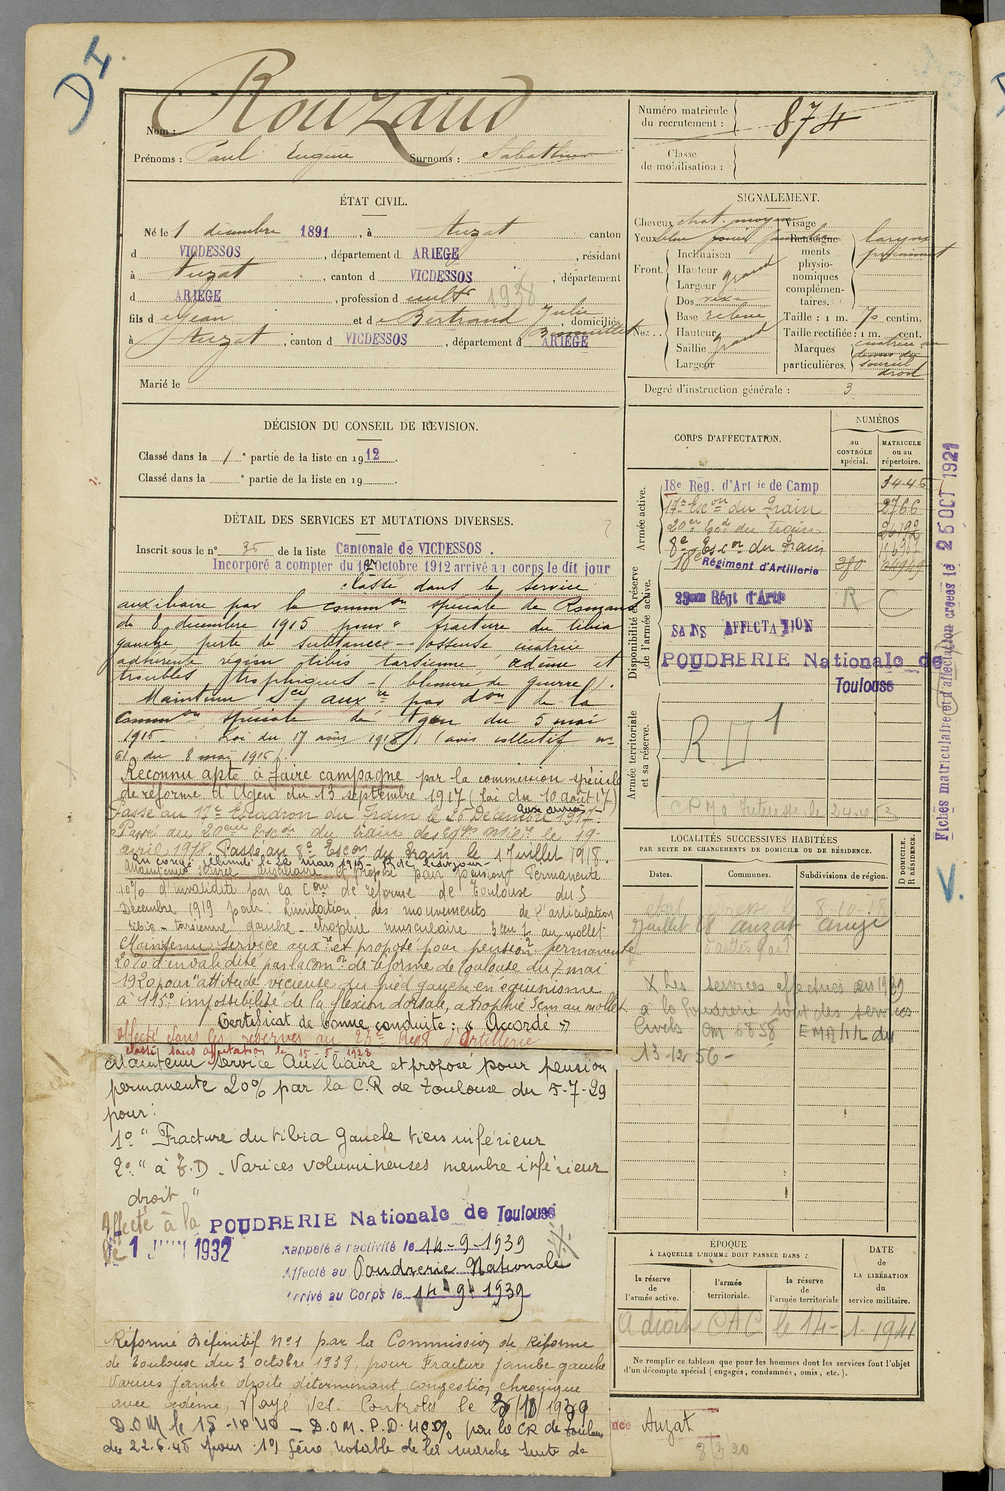 D I
Nom : Rouzaud
Prénoms : Paul Eugène Surnoms : Sabathier
Numéro matricule du recrutement : 874
Classe de mobilisation :
ÉTAT CIVIL.
Né le 1 décembre 1891, à Auzat canton
d VICDESSOS, département d ARIEGE, résidant
à Auzat, canton d VICDESSOS, département
d ARIEGE, profession d cultr 1938
fils d e Jean et d e Bertrand Julie domiciliés
à Auzat, canton d VICDESSOS, département d ARIEGE
Marié le
SIGNALEMENT.
Cheveux chat. moyen Visage
Yeux bleu
Renseignements physionomiques complémentaires.
Front. Inclinaison
Hauteur grand
Largeur
Nez. Dos
Base
Hauteur grand
Saillie
Largeur
Taille : 1 m. 70 centim.
Taille rectifiée : 1 m. cent.
Marques particulières. sourcil droit
Degré d'instruction générale : 3
DÉCISION DU CONSEIL DE RÉVISION.
Classé dans la 1e partie de la liste en 1912.
Classé dans la e partie de la liste en 19 .
DÉTAIL DES SERVICES ET MUTATIONS DIVERSES.
Inscrit sous le n° 36 de la liste Cantonale de VICDESSOS.
Incorporé à compter du 10 Octobre 1912 arrivé au corps le dit jour
Classé dans le service
auxiliaire par la common spéciale de Romans
du 8 décembre 1915 pour " fracture du tibia
gauche, perte de substance osseuse, cicatrice
adhérente région tibio tarsienne, œdème et
troubles trophiques - (blessure de guerre).
Maintenu sce auxre par don de la
Common spéciale de Agen du 5 mai
1916. Loi du 17 août 1915) (avis collectif n°
61 du 8 mai 1916)
Reconnu apte à faire campagne par la commission spéciale
de réforme d'Agen du 13 septembre 1917 (loi du 10 août 17)
Passé au 17e Escadron du Train le 20 Décembre 1917.
Passé au 20eme Escon du train des éqges milres le 19
avril 1918. Passé au 8e Escon du Train le 1 Juillet 1918.
Maintenu service auxiliaire et proposé pour pension permanente
10% d'invalidité par la Con de réforme de Toulouse du 3
Décembre 1919 pour : limitation des mouvements de l'articulation
tibio-tarsienne gauche - atrophie musculaire 3 cm 1/2 au mollet.
Maintenu service auxre et proposé pour pension permanente
20% d'invalidité par la Comon de réforme de Toulouse du 7 mai
1920 pour "attitude vicieuse du pied gauche en équinisme
à 115° impossibilité de la flexion dorsale, atrophie 3cm au mollet.
Certificat de bonne conduite : « Accordé »
affecté dans les réserves au 23e Régt d'Artillerie
classé sans affectation le 15-5-1928
Maintenu service Auxiliaire et proposé pour pension
permanente 20% par la C.R de Toulouse du 5-7-29
pour :
1° " Fracture du tibia Gauche tiers inférieur
2° " à E.D. Varices volumineuses membre inférieur
droit "
Affecté à la POUDRERIE Nationale de Toulouse
le 1 JUIN 1932
Rappelé à l'activité le 14-9-1939
Affecté au Poudrerie Nationale
Arrivé au Corps le 14-9-1939
Réformé définitif N°1 par la Commission de Réforme
de Toulouse du 3 octobre 1939, pour Fracture jambe gauche
Varices jambe droite déterminant congestion chronique
avec œdème, Rayé des Contrôles le 25/10/1939
D.O.M. le 15-10-40 - D.O.M. P.D. 40% par la CR de Toulouse
du 22.6.45 pour 1°) Gêne notable de la marche suite de
CORPS D'AFFECTATION.
NUMÉROS
au CONTRÔLE spécial.
MATRICULE ou au répertoire.
Armée active.
18e Rég. d'Artie de Camp 3445
17e Escon du Train 2766
20e Escd du Train
8e Escon du Train
18e Régiment d'Artillerie 280
Disponibilité et réserve de l'armée active.
23eme Régt d'Artie R C
SANS AFFECTATION
POUDRERIE Nationale de
Toulouse
Armée territoriale et sa réserve.
Fiches matriculaire et d'affectation créées le 25 OCT 1921
V.
LOCALITÉS SUCCESSIVES HABITÉES
PAR SUITE DE CHANGEMENTS DE DOMICILE OU DE RÉSIDENCE.
Dates. Communes. Subdivisions de région. D DOMICILE. R RÉSIDENCE.
Juillet 28 Auzat Ariège
X Les services effectués en 1939
à la Poudrerie sont des services
civils CM 6858 EMA/4/L du
13-12-56-
ÉPOQUE
À LAQUELLE L'HOMME DOIT PASSER DANS :
la réserve de l'armée active.
l'armée territoriale.
la réserve de l'armée territoriale
DATE de LA LIBÉRATION du service militaire.
A droit CAC le 14-1-1941
Ne remplir ce tableau que pour les hommes dont les services font l'objet
d'un décompte spécial ( engagés, condamnés, omis, etc. ).
nce Auzat
8/3 20